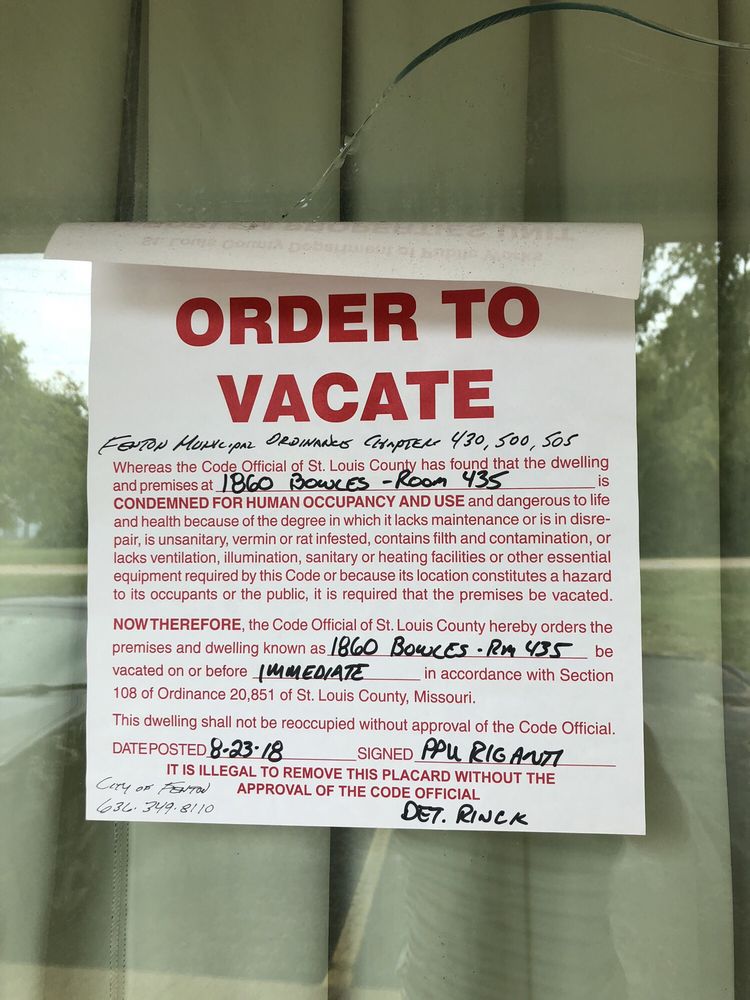 PROBLEM PROPERTIES UNIT
St. Louis County Department of Public Works
ORDER TO
VACATE
FENTON MUNICIPAL ORDINANCE CHAPTER 430, 500, 505
Whereas the Code Official of St. Louis County has found that the dwelling
and premises at 1860 BOWLES - ROOM 435 is
CONDEMNED FOR HUMAN OCCUPANCY AND USE and dangerous to life
and health because of the degree in which it lacks maintenance or is in disre-
pair, is unsanitary, vermin or rat infested, contains filth and contamination, or
lacks ventilation, illumination, sanitary or heating facilities or other essential
equipment required by this Code or because its location constitutes a hazard
to its occupants or the public, it is required that the premises be vacated.
NOW THEREFORE, the Code Official of St. Louis County hereby orders the
premises and dwelling known as 1860 BOWLES - RM 435 be
vacated on or before IMMEDIATE in accordance with Section
108 of Ordinance 20,851 of St. Louis County, Missouri.
This dwelling shall not be reoccupied without approval of the Code Official.
DATE POSTED 8-23-18 SIGNED PPU RIGANTI
IT IS ILLEGAL TO REMOVE THIS PLACARD WITHOUT THE
APPROVAL OF THE CODE OFFICIAL
CITY OF FENTON
636.349.8110
DET. RINCK